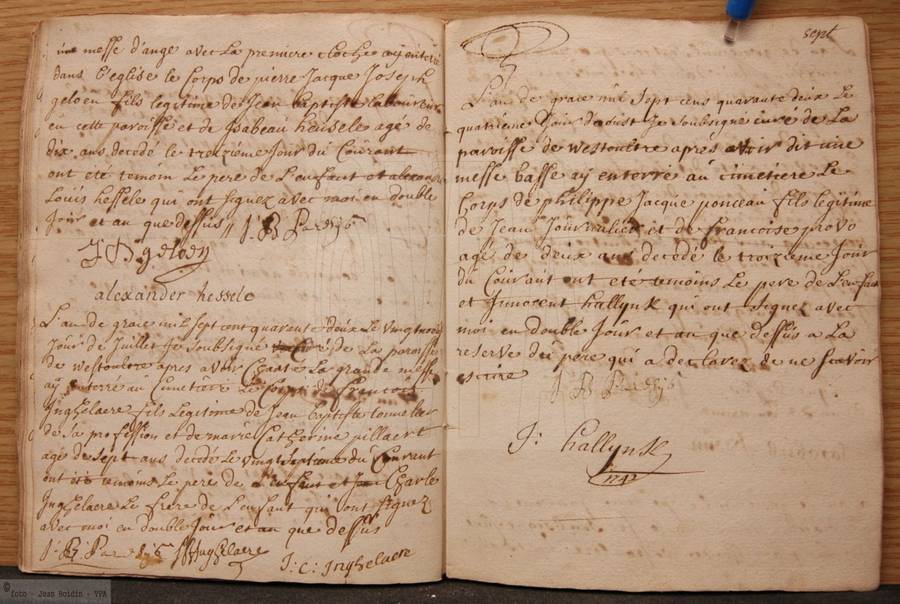 messe d'ange avec La premiere cloche ay enterré
dans L'eglise le Corps de pierre Jacque Joseph
geloen fils legitime de Jean baptiste Laboureur
en cette paroisse et de Isabeau hessele agé de
dix ans decedé le treizième Jour du Courant
ont eté temoin Le pere de L'enfant et alexandre
Loüis hessele qui ont signez avec moi en double
Jour et an que dessus J: B
J B geloen
alexander hessele
L'an de grace mil sept cent quarente deux Le vingt
Jour de Juillet Je soubsigné Curé de La paroisse
de westoutre apres avoir Chanté La grande messe
ay enterré au Cimetiere Le Corps de francois
Inghelaere fils Legitime de Jean baptiste tonnelier
de sa profession et de marie Catherine pillaert
agé de sept ans decedé Le vingt septieme du Courent
ont eté temoins Le pere de L'enfant et Charle
Inghelaere Le frere de L'enfant qui ont signez
avec moi en double Jour et an que dessus
J: B: Inghelaere J: C: Inghelaere
sept
L'an de grace mil sept cens quarante deux Le
quatrieme Jour d'aoust Je soubsigné curé de La
paroisse de westoutre après avoir dit une
messe basse ay enterré au cimetiere Le
Corps de philippe Jacque ponceau fils legitime
de Jean Journalier et de francoise provo
agé de deux ans decedé le troizieme Jour
du Courant ont eté temoins Le pere de L'enfant
et Innocent hallynk qui ont signez avec
moi en double Jour et an que dessus a La
reserve du pere qui a declarez de ne scavoir
escrire
J B
J: hallynk
1742
foto - Jean Boidin - VPA